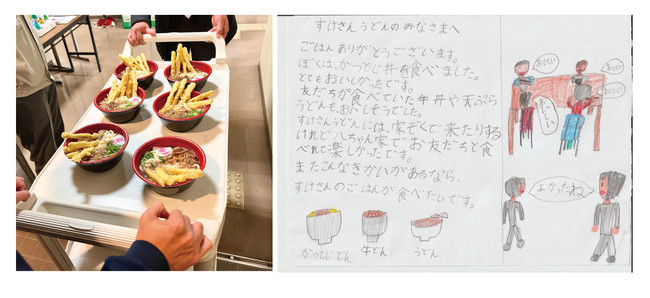 すけさんうどんのみなさまへ
ごはんありがとうございます。
ぼくは、かつとじ丼を食べました。
とてもおいしかったです。
友だちが食べていた牛丼や天ぷら
うどんもおいしそうでした。
すけさんうどんには、家ぞくで来たりする
けれど八ちゃん家でお友だちと食
べれて楽しかったです。
またこんなきかいがあるなら、
すけさんのごはんが食べたいです。
かつとじどん
牛どん
うどん
おいしい
おいしい
おいしい
よかったね